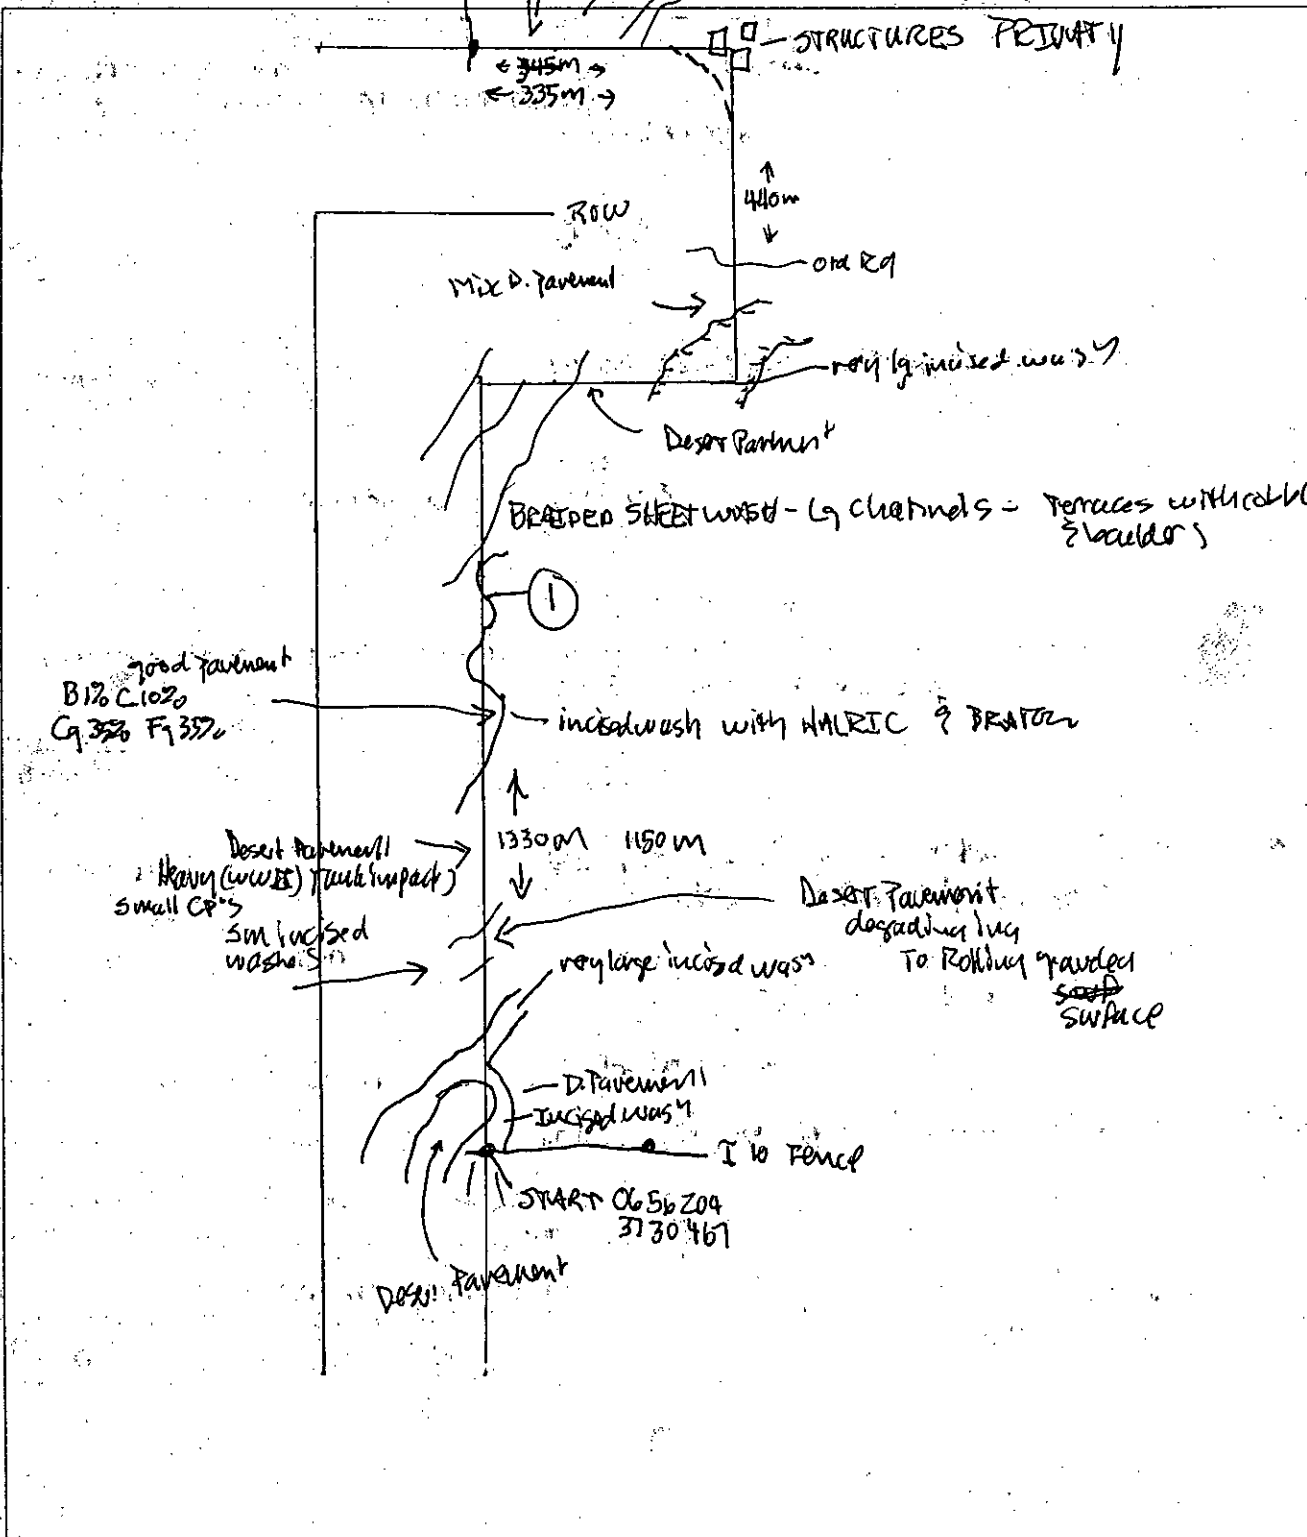 STRUCTURES PRIVATY
← 345m →
← 335m →
440m
ROW
Old Rd
Mix D. Pavement
very lg incised wash
Desert Pavment
BRAIDED SHEETWASH - Lg Channels - Terraces with cobbl
& boulders
1
good pavement
B1% C10%
Cg 35% Fg 35%
incised wash with HALRIC &
1330m 1150m
Desert Pavement
Heavy (WWII) Tank impact
small CP's
Sm incised
washes
Desert Pavement
degrading
To Rolling graveled
surface
very large incised wash
D. Pavement
Incised wash
I 10 Fence
START 0656204
3730467
Desert Pavement